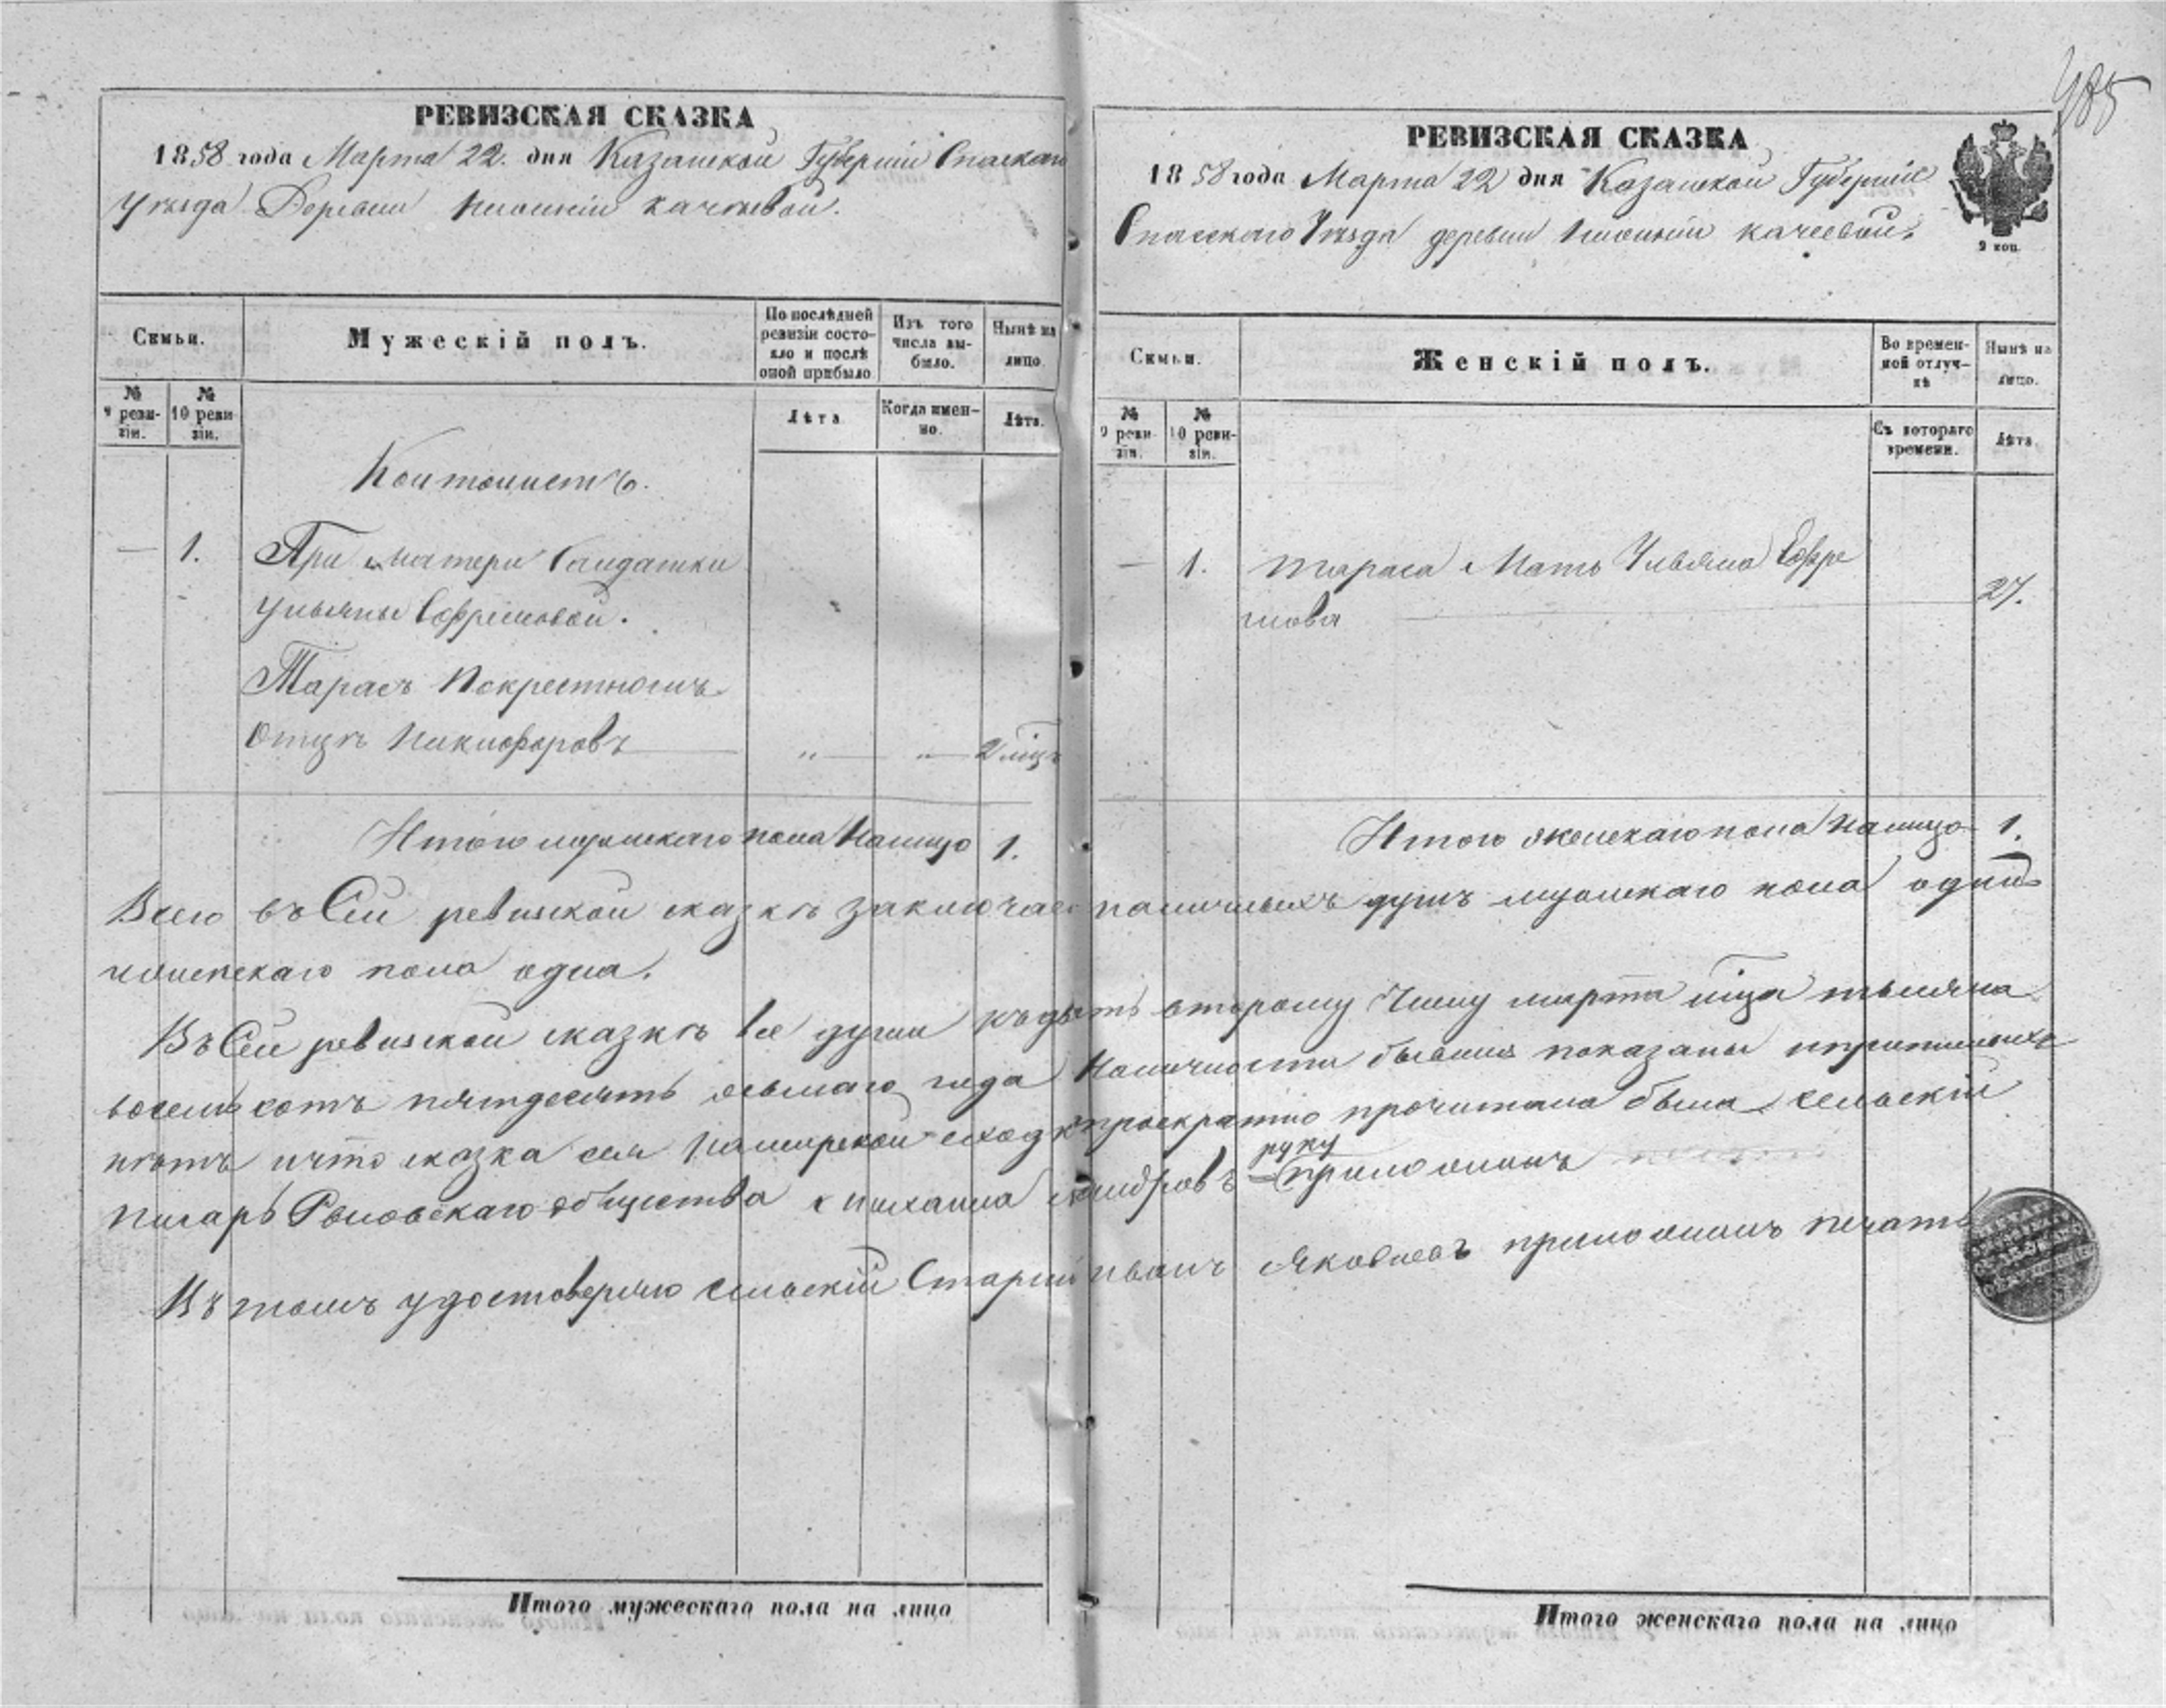 485
РЕВИЗСКАЯ СКАЗКА
1858 года Марта 22. дня Казанской Губернии Спаскаго
Уѣзда Деревни Нижней Качѣевой.
Семьи.
Мужескій полъ.
По послѣдней ревизіи состояло и послѣ оной прибыло
Изъ того числа выбыло.
Нынѣ на лицо
№ 9 ревизіи.
№ 10 ревизіи.
Лѣта
Когда именно.
Лѣта.
Кантонистъ.
— 1. При матери Салдатки
Ульяны Ефремовой.
Тарасъ Покрестномъ
Отцѣ Никифоровъ — „ — „ — 2 мѣц
Итого мужескаго пола Налицо 1.
РЕВИЗСКАЯ СКАЗКА
1858 года Марта 22 дня Казанской Губерніи
Спасскаго Уѣзда деревни Нижней Качеевой.
2 коп.
Семьи.
Женскій полъ.
Во временной отлучкѣ
Нынѣ на лицо.
№ 9 ревизіи.
№ 10 ревизіи.
Съ котораго времени.
Лѣта
— 1. Тараса Мать Ульяна Ефре
мова — 27.
Итого женскаго пола Налицо 1.
Всего въ Сей ревизской сказкѣ заключае наличныхъ душъ мужскаго пола одна
женскаго пола одна.
Въ Сей ревизской сказкѣ все души къ второму Числу марта мѣца тысяча
восемь сотъ пятдесятъ осьмаго года Наличности бывшия показаны
нѣтъ и что сказка сия Намирской сходкѣ троекратно прочитана была. Сельскій
руку
писарь общества приложилъ
Въ томъ удостоверяю Сельскій Старши Иванъ Яковлевъ приложилъ печать
Итого мужескаго пола на лицо
Итого женскаго пола на лицо